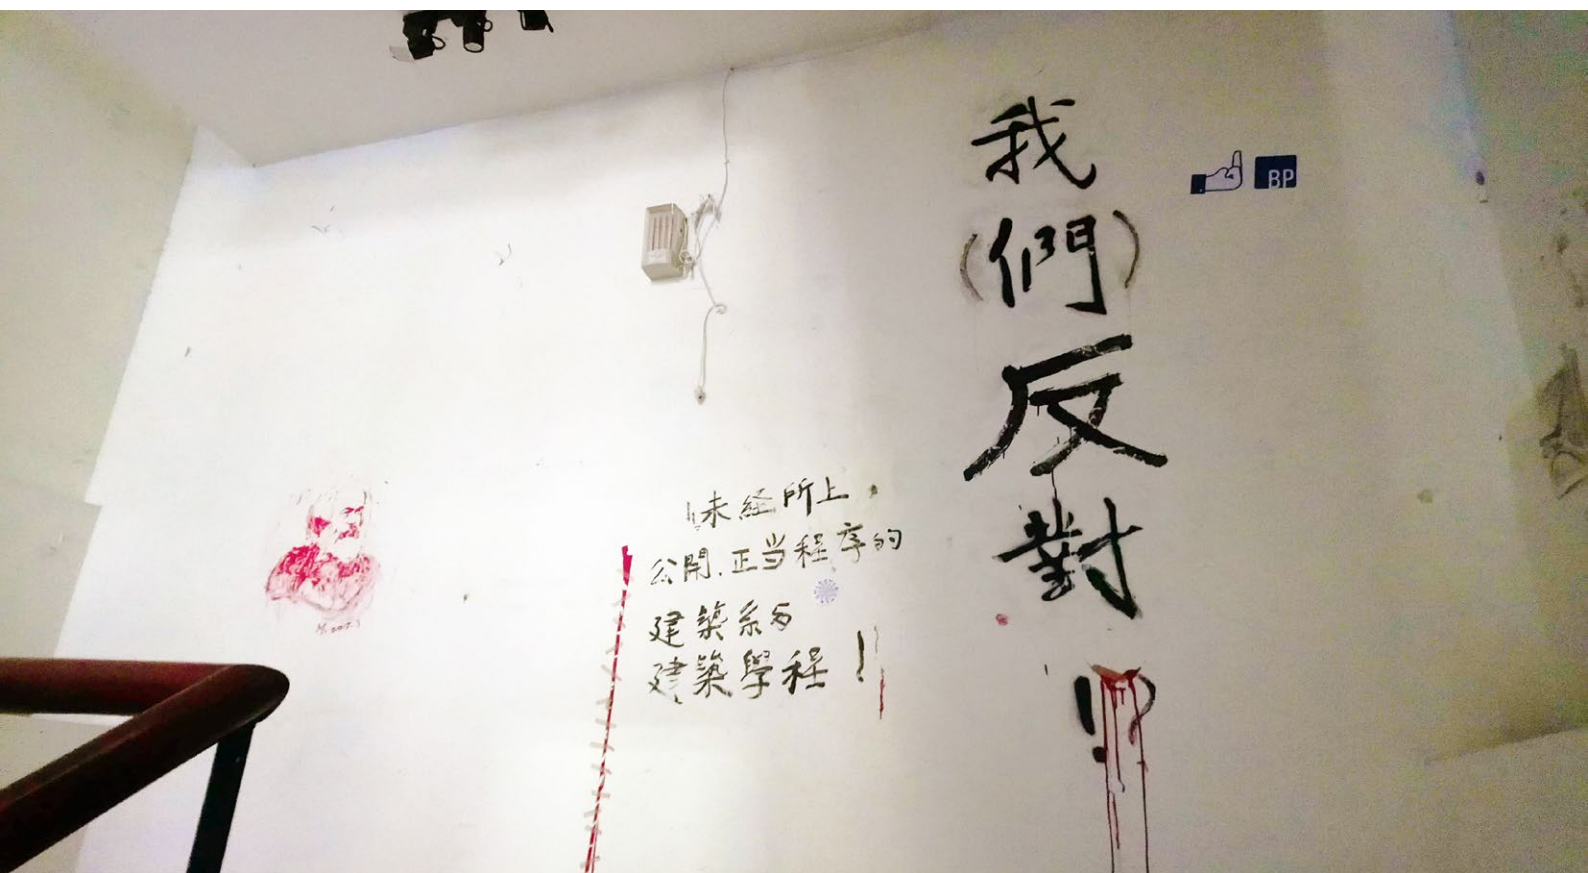 我
(們)
反
對
!?
BP
未経所上
公開.正当程序的
建築系与
建築學程!